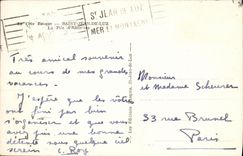 La Côte Basque - SAINT-JEAN-DE-LUZ
St JEAN DE LUZ
MER ET MONTAGNE
Très amical souvenir
au cours de mes grandes
vacances.
J'espère que les vôtres
ont fini par bien
s'organiser et que vous
avez pris une bonne
détente sous quelque ciel
serein
C. Roy
Monsieur
et Madame Scheurer
33 rue Brunel
Paris